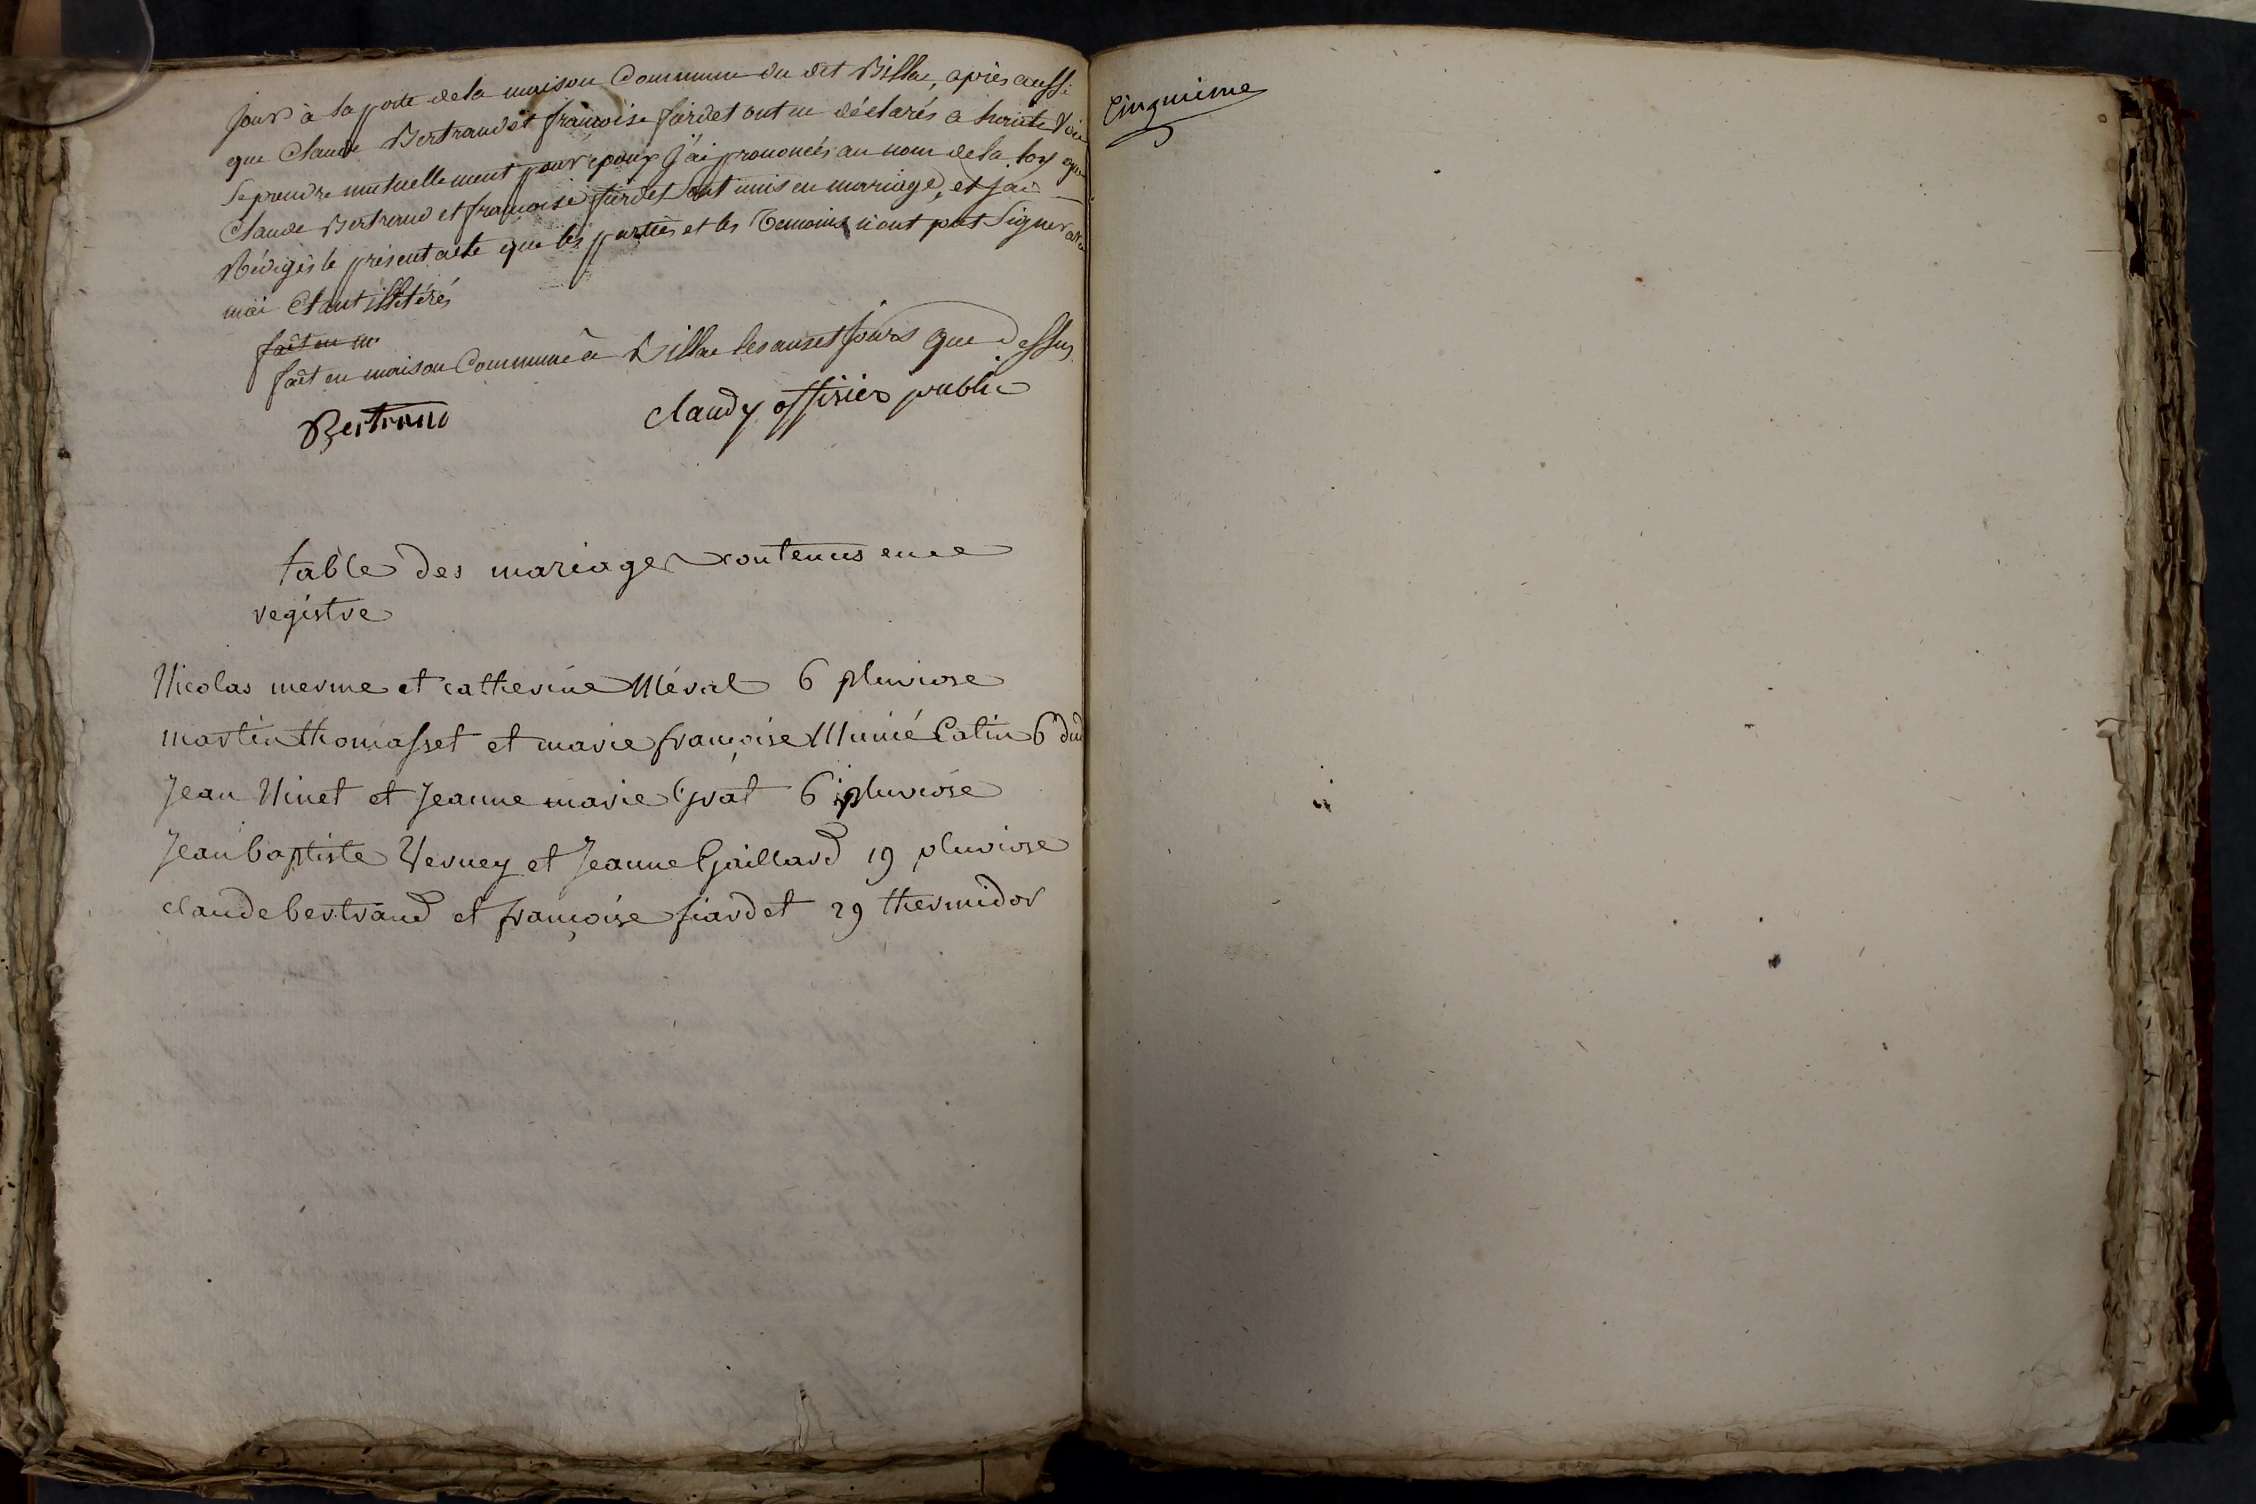 Jour à la porte de la maison Commune du dit Villar, après aussi
que Claude Bertrand et françoise fiardet ont eu déclarés a haute Voix
Se prendre mutuellement pour epoux J'ai prononcés au nom de la loy que
Claude Bertrand et françoise fiardet Sont unis en mariage, et J'ai
Rédigés le présent acte que les parties et les Temoins n'ont pat Signer avec
moi Etant illitérés
fait en m
fait en maison Commune à Villar les ans et Jours que dessus
Bertrand claudy offisier public
table des mariages contenus en ce
registre
Nicolas merme et catherine Mérat 6 pluviose
martin thomasset et marie françoise Minié Catin 6 dud
Jean Ninet et Jeanne marie Grat 6 pluviose
Jean baptiste Verney et Jeanne Gaillard 19 pluviose
claude bertrand et françoise fiardet 29 thermidor
Cinquième